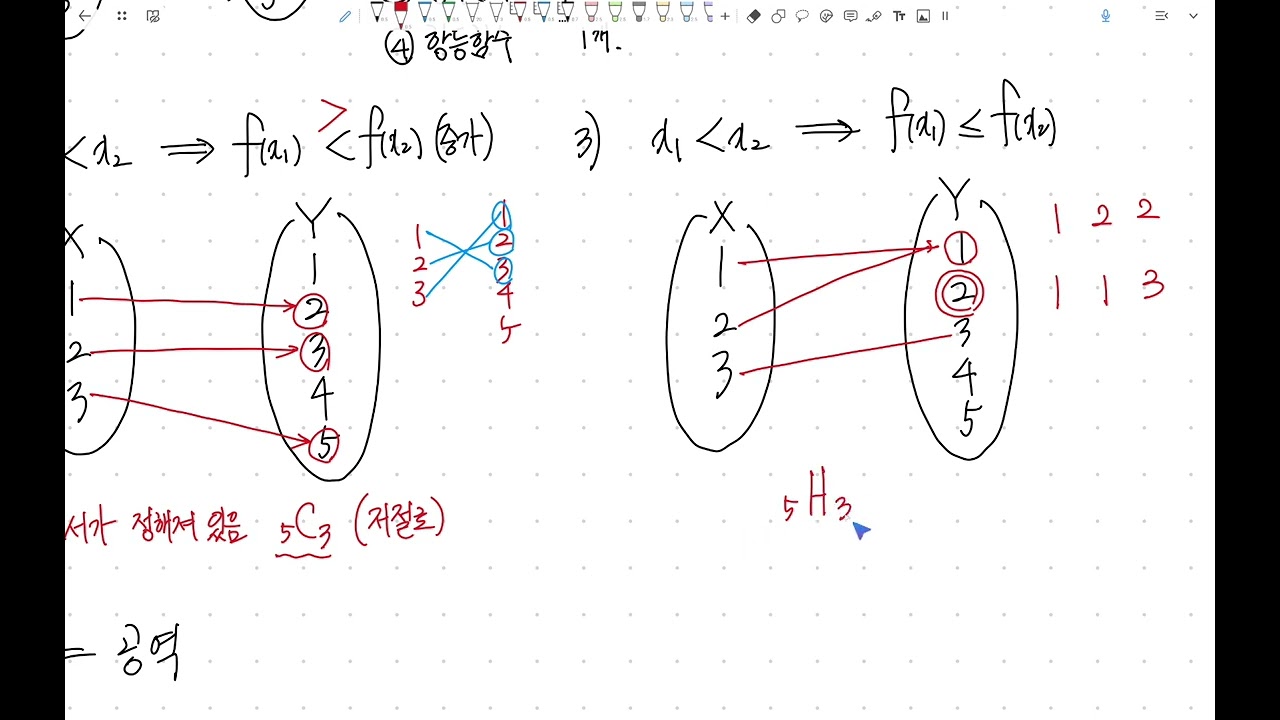 ④ 항등함수 1개.
< x₂ ⟹ f(x₁) < f(x₂) (증가)
>
3) x₁ < x₂ ⟹ f(x₁) ≤ f(x₂)
X
1
2
3
Y
1
2
3
4
5
1
2
3
1
2
3
4
5
X
1
2
3
Y
1
2
3
4
5
1 2 2
1 1 3
서가 정해져 있음 ₅C₃ (저절로)
₅H₃
= 공역